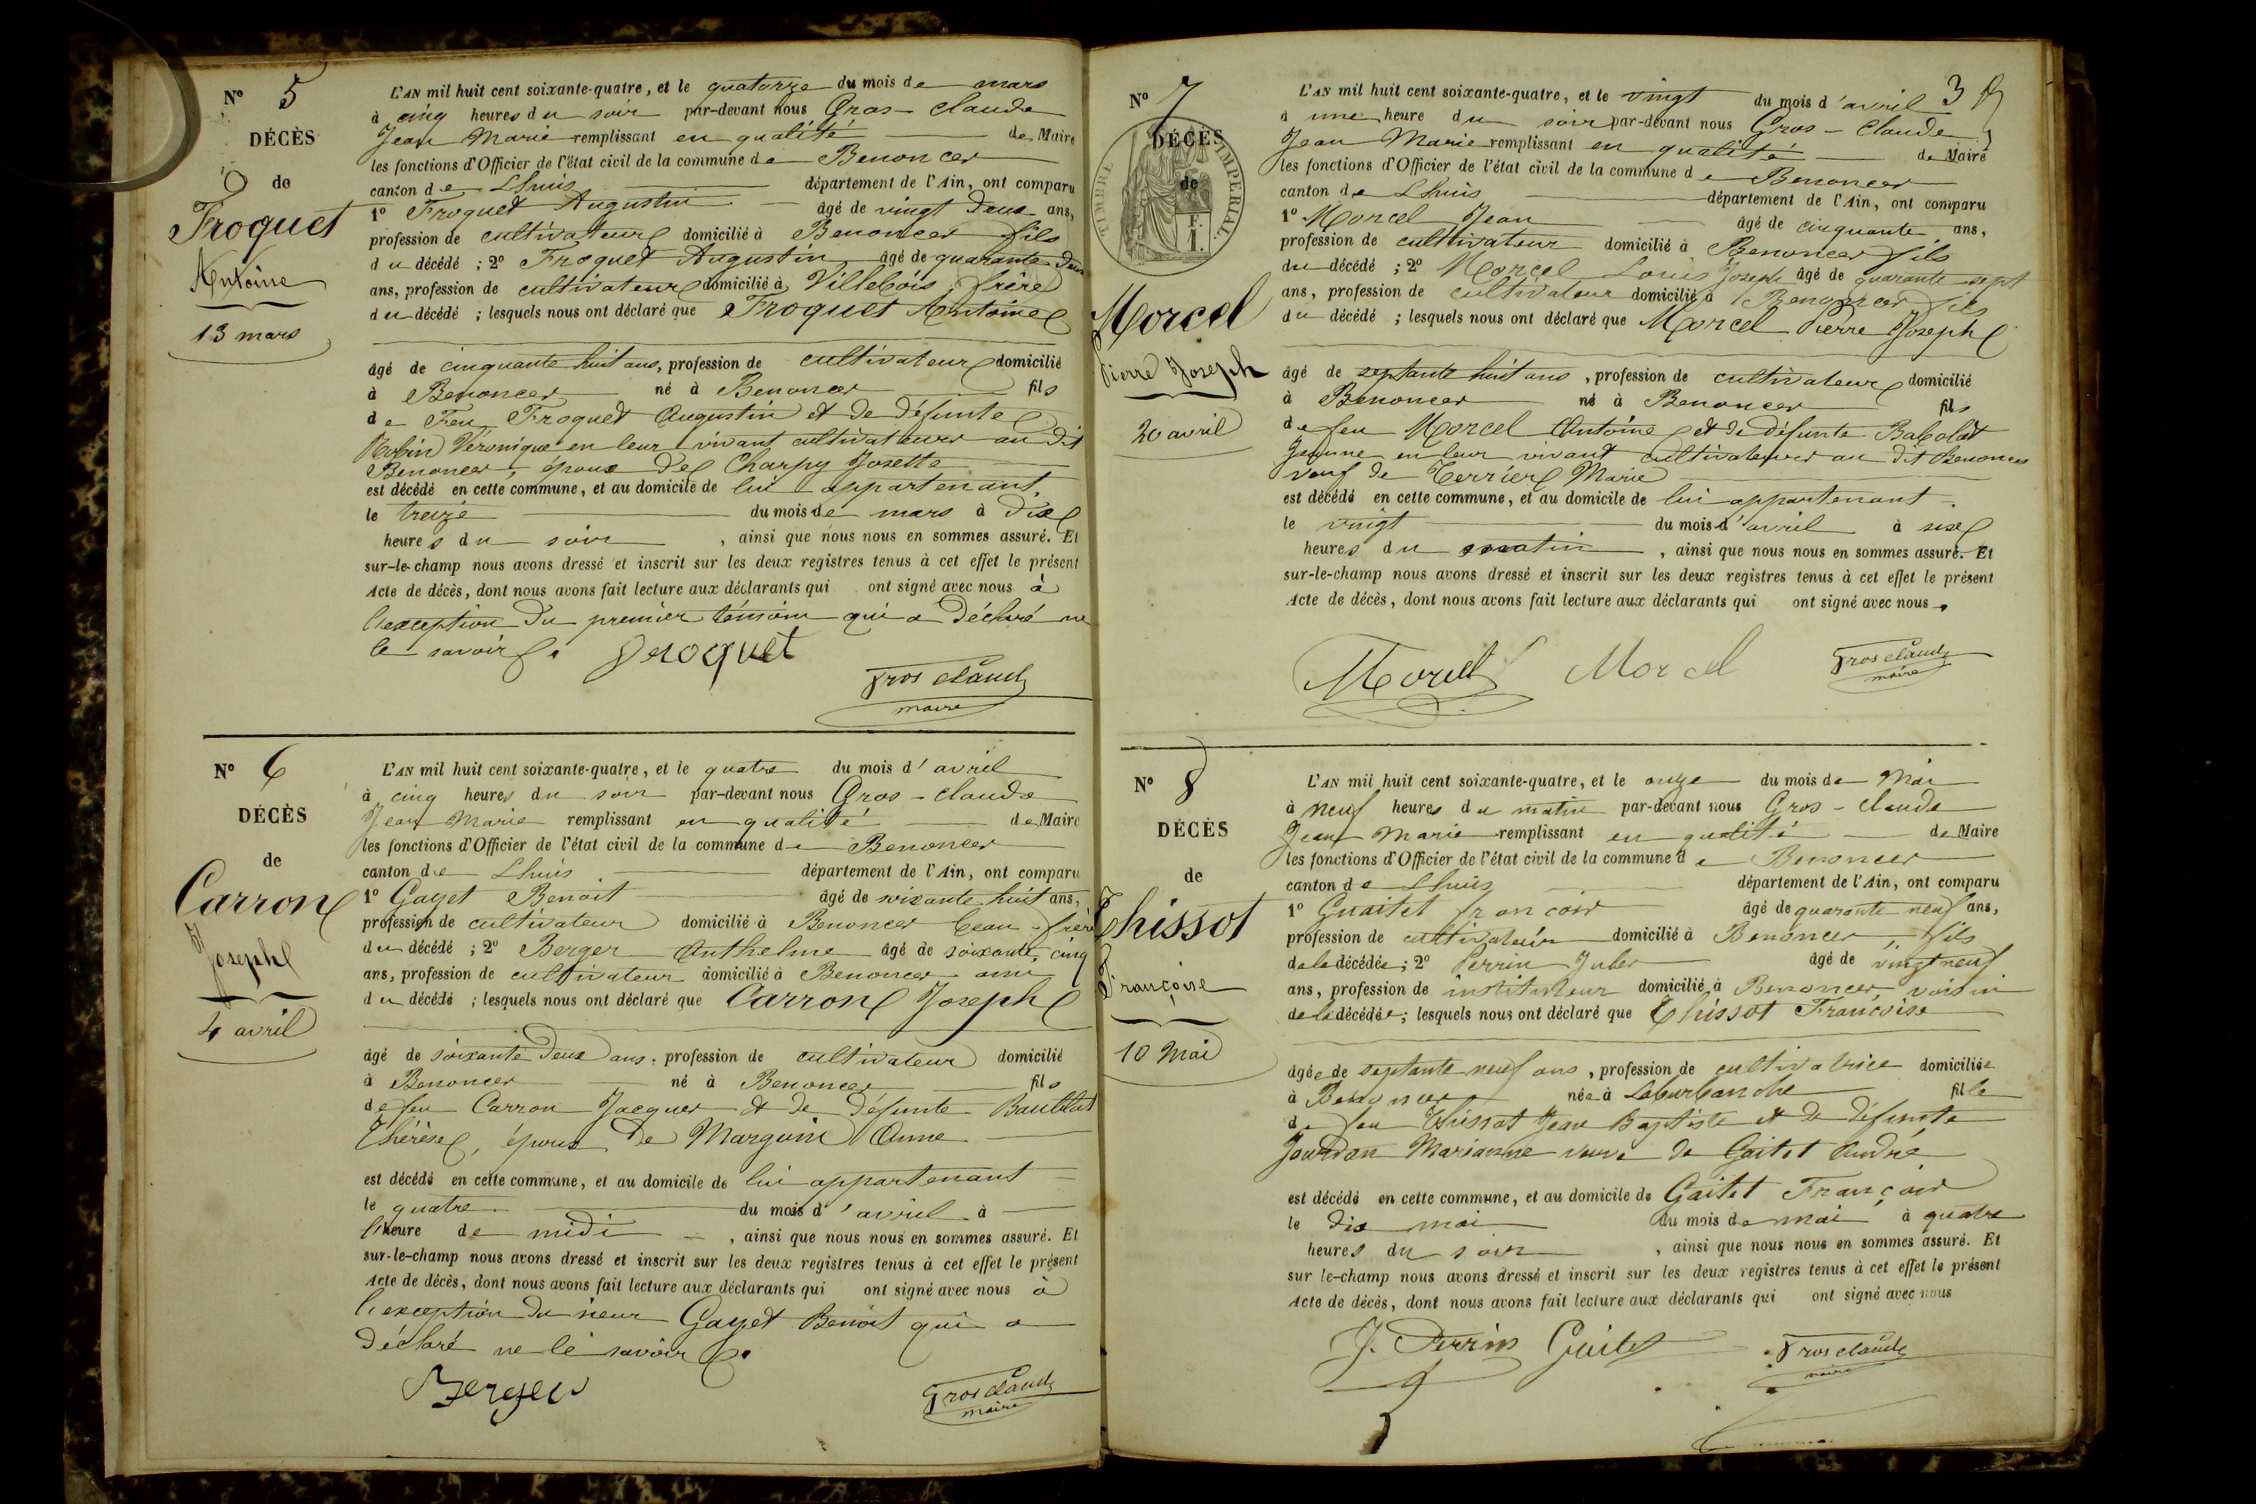 N° 5
DÉCÈS
de
Froquet
Antoine
13 mars
L'AN mil huit cent soixante-quatre, et le quatorze du mois de mars
à cinq heures du soir par-devant nous Gros-Claude
Jean Marie remplissant en qualité de Maire
les fonctions d'Officier de l'état civil de la commune de Benoncer
canton de Lhuis département de l'Ain, ont comparu
1° Froquet Augustin âgé de vingt deux ans,
profession de cultivateur domicilié à Benoncer fils
du décédé ; 2° Froquet Augustin âgé de quarante deux
ans, profession de cultivateur domicilié à Villebois, frère
du décédé ; lesquels nous ont déclaré que Froquet Antoine
âgé de cinquante huit ans, profession de cultivateur domicilié
à Benoncer né à Benoncer fils
de Feu Froquet Augustin et de défunte
Rubin Véronique en leur vivant cultivateurs au dit
Benoncer, époux de Charpy Josette
est décédé en cette commune, et au domicile de lui appartenant
le treize du mois de mars à dix
heures du soir, ainsi que nous nous en sommes assuré. Et
sur-le-champ nous avons dressé et inscrit sur les deux registres tenus à cet effet le présent
Acte de décès, dont nous avons fait lecture aux déclarants qui ont signé avec nous à
l'exception du premier témoin qui a déclaré ne
le savoir.
froquet
Gros claude
maire
N° 6
DÉCÈS
de
Carron
Joseph
4 avril
L'AN mil huit cent soixante-quatre, et le quatre du mois d'avril
à cinq heures du soir par-devant nous Gros-Claude
Jean Marie remplissant en qualité de Maire
les fonctions d'Officier de l'état civil de la commune de Benoncer
canton de Lhuis département de l'Ain, ont comparu
1° Gayet Benoit âgé de soixante huit ans,
profession de cultivateur domicilié à Benoncer beau-frère
du décédé ; 2° Berger Anthelme âgé de soixante cinq
ans, profession de cultivateur domicilié à Benoncer ami
du décédé ; lesquels nous ont déclaré que Carron Joseph
âgé de soixante deux ans, profession de cultivateur domicilié
à Benoncer né à Benoncer fils
de feu Carron Jacques et de défunte
Thérèse, époux de Marguin Anne
est décédé en cette commune, et au domicile de lui appartenant
le quatre du mois d'avril à
l'heure de midi, ainsi que nous nous en sommes assuré. Et
sur-le-champ nous avons dressé et inscrit sur les deux registres tenus à cet effet le présent
Acte de décès, dont nous avons fait lecture aux déclarants qui ont signé avec nous à
l'exception du sieur Gayet Benoit qui a
déclaré ne le savoir.
Berger
Gros claude
maire
3
N° 7
DÉCÈS
de
TIMBRE IMPÉRIAL
F.
1.
Morcel
Pierre Joseph
20 avril
L'AN mil huit cent soixante-quatre, et le vingt du mois d'avril
à une heure du soir par-devant nous Gros-Claude
Jean Marie remplissant en qualité de Maire
les fonctions d'Officier de l'état civil de la commune de Benoncer
canton de Lhuis département de l'Ain, ont comparu
1° Morcel Jean âgé de cinquante ans,
profession de cultivateur domicilié à Benoncer fils
du décédé ; 2° Morcel Louis Joseph âgé de quarante sept
ans, profession de cultivateur domicilié à Benoncer fils
du décédé ; lesquels nous ont déclaré que Morcel Pierre Joseph
âgé de septante huit ans, profession de cultivateur domicilié
à Benoncer né à Benoncer fils
de feu Morcel Antoine et de défunte Babolat
Jeanne en leur vivant cultivateurs au dit Benoncer
veuf de Terrier Marie
est décédé en cette commune, et au domicile de lui appartenant
le vingt du mois d'avril à six
heures du matin, ainsi que nous nous en sommes assuré. Et
sur-le-champ nous avons dressé et inscrit sur les deux registres tenus à cet effet le présent
Acte de décès, dont nous avons fait lecture aux déclarants qui ont signé avec nous.
Morcel Morcel Gros claude
maire
N° 8
DÉCÈS
de
Thissot
Françoise
10 Mai
L'AN mil huit cent soixante-quatre, et le onze du mois de Mai
à neuf heures du matin par-devant nous Gros-Claude
Jean Marie remplissant en qualité de Maire
les fonctions d'Officier de l'état civil de la commune de Benoncer
canton de Lhuis département de l'Ain, ont comparu
1° Guaitet françois âgé de quarante neuf ans,
profession de cultivateur domicilié à Benoncer fils
de la décédée ; 2° Perrin Jules âgé de vingt neuf
ans, profession de instituteur domicilié à Benoncer voisin
de la décédée ; lesquels nous ont déclaré que Thissot Françoise
âgée de septante neuf ans, profession de cultivatrice domiciliée
à Benoncer née à Laburbanche fille
de feu Thissot Jean Baptiste et de défunte
Jourdan Marianne veuve de Gaitet André
est décédé en cette commune, et au domicile de Gaitet François
le dix mai du mois de mai à quatre
heures du soir, ainsi que nous nous en sommes assuré. Et
sur le-champ nous avons dressé et inscrit sur les deux registres tenus à cet effet le présent
Acte de décès, dont nous avons fait lecture aux déclarants qui ont signé avec nous
J. Perrin Gaitet Gros claude
maire